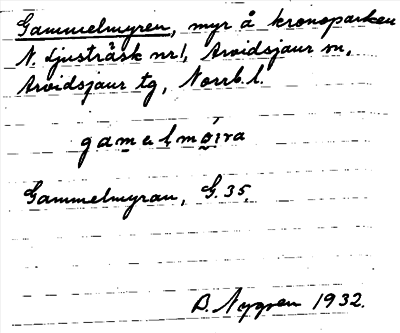 Gammelmyren, myr å kronoparken
N. Ljusträsk nr 1, Arvidsjaur sn,
Arvidsjaur tg, Norrb. l.
Gammelmyran, G. 35.
B. Nygren 1932.